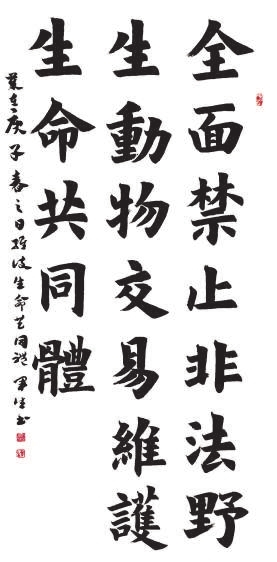 全面禁止非法野
生動物交易維護
生命共同體
庚子春之日生命共同體書